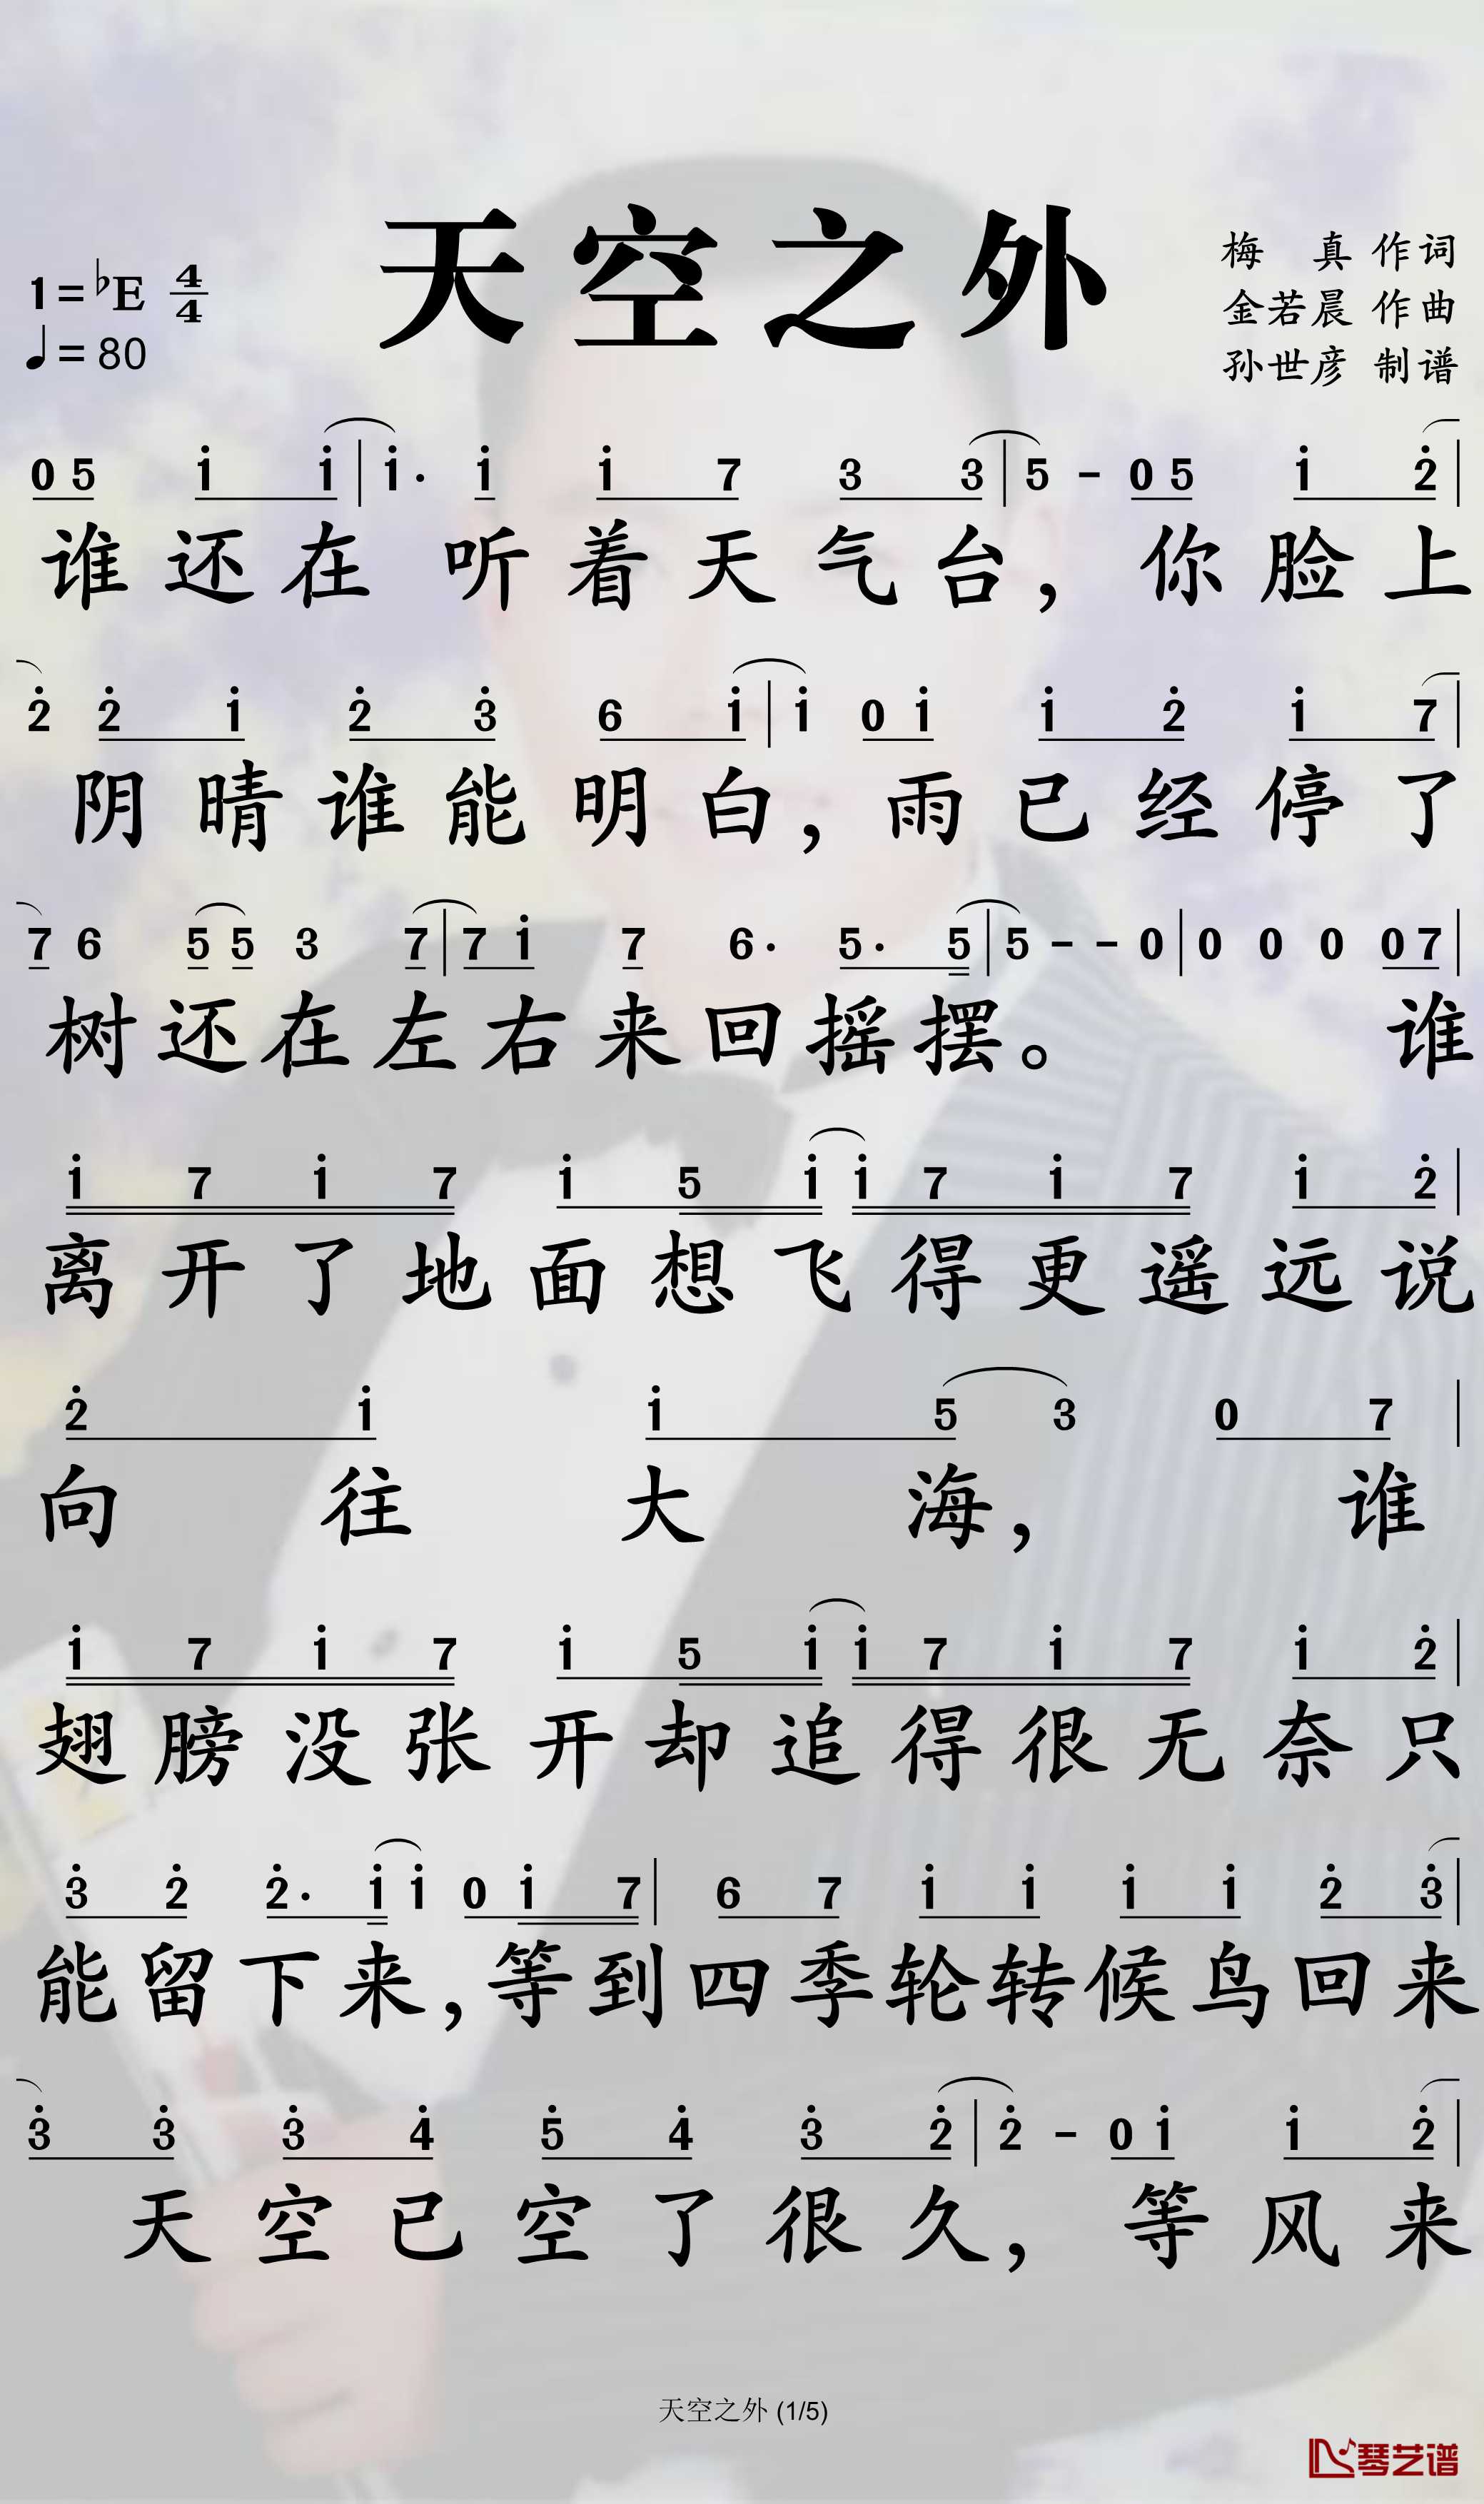 天空之外
1=♭E 4/4
♩=80
梅 真 作词
金若晨 作曲
孙世彦 制谱
0 5 i i | i· i i 7 3 3 | 5 - 0 5 i 2̇ |
谁还在 听着天气台，你脸上
2̇ 2̇ i 2̇ 3̇ 6 i | i 0 i i 2̇ i 7 |
阴晴谁能明白，雨已经停了
7 6 5 5 3 7 | 7 i 7 6· 5· 5 | 5 - - 0 | 0 0 0 0 7 |
树还在左右来回摇摆。 谁
i 7 i 7 i 5 i i 7 i 7 i 2̇ |
离开了地面想飞得更遥远说
2̇ i i 5 3 0 7 |
向往大海， 谁
i 7 i 7 i 5 i i 7 i 7 i 2̇ |
翅膀没张开却追得很无奈只
3̇ 2̇ 2̇· i i 0 i 7 | 6 7 i i i i 2̇ 3̇ |
能留下来，等到四季轮转候鸟回来
3̇ 3̇ 3̇ 4̇ 5̇ 4̇ 3̇ 2̇ | 2̇ - 0 i i 2̇ |
天空已空了很久，等风来
天空之外 (1/5)
琴艺谱